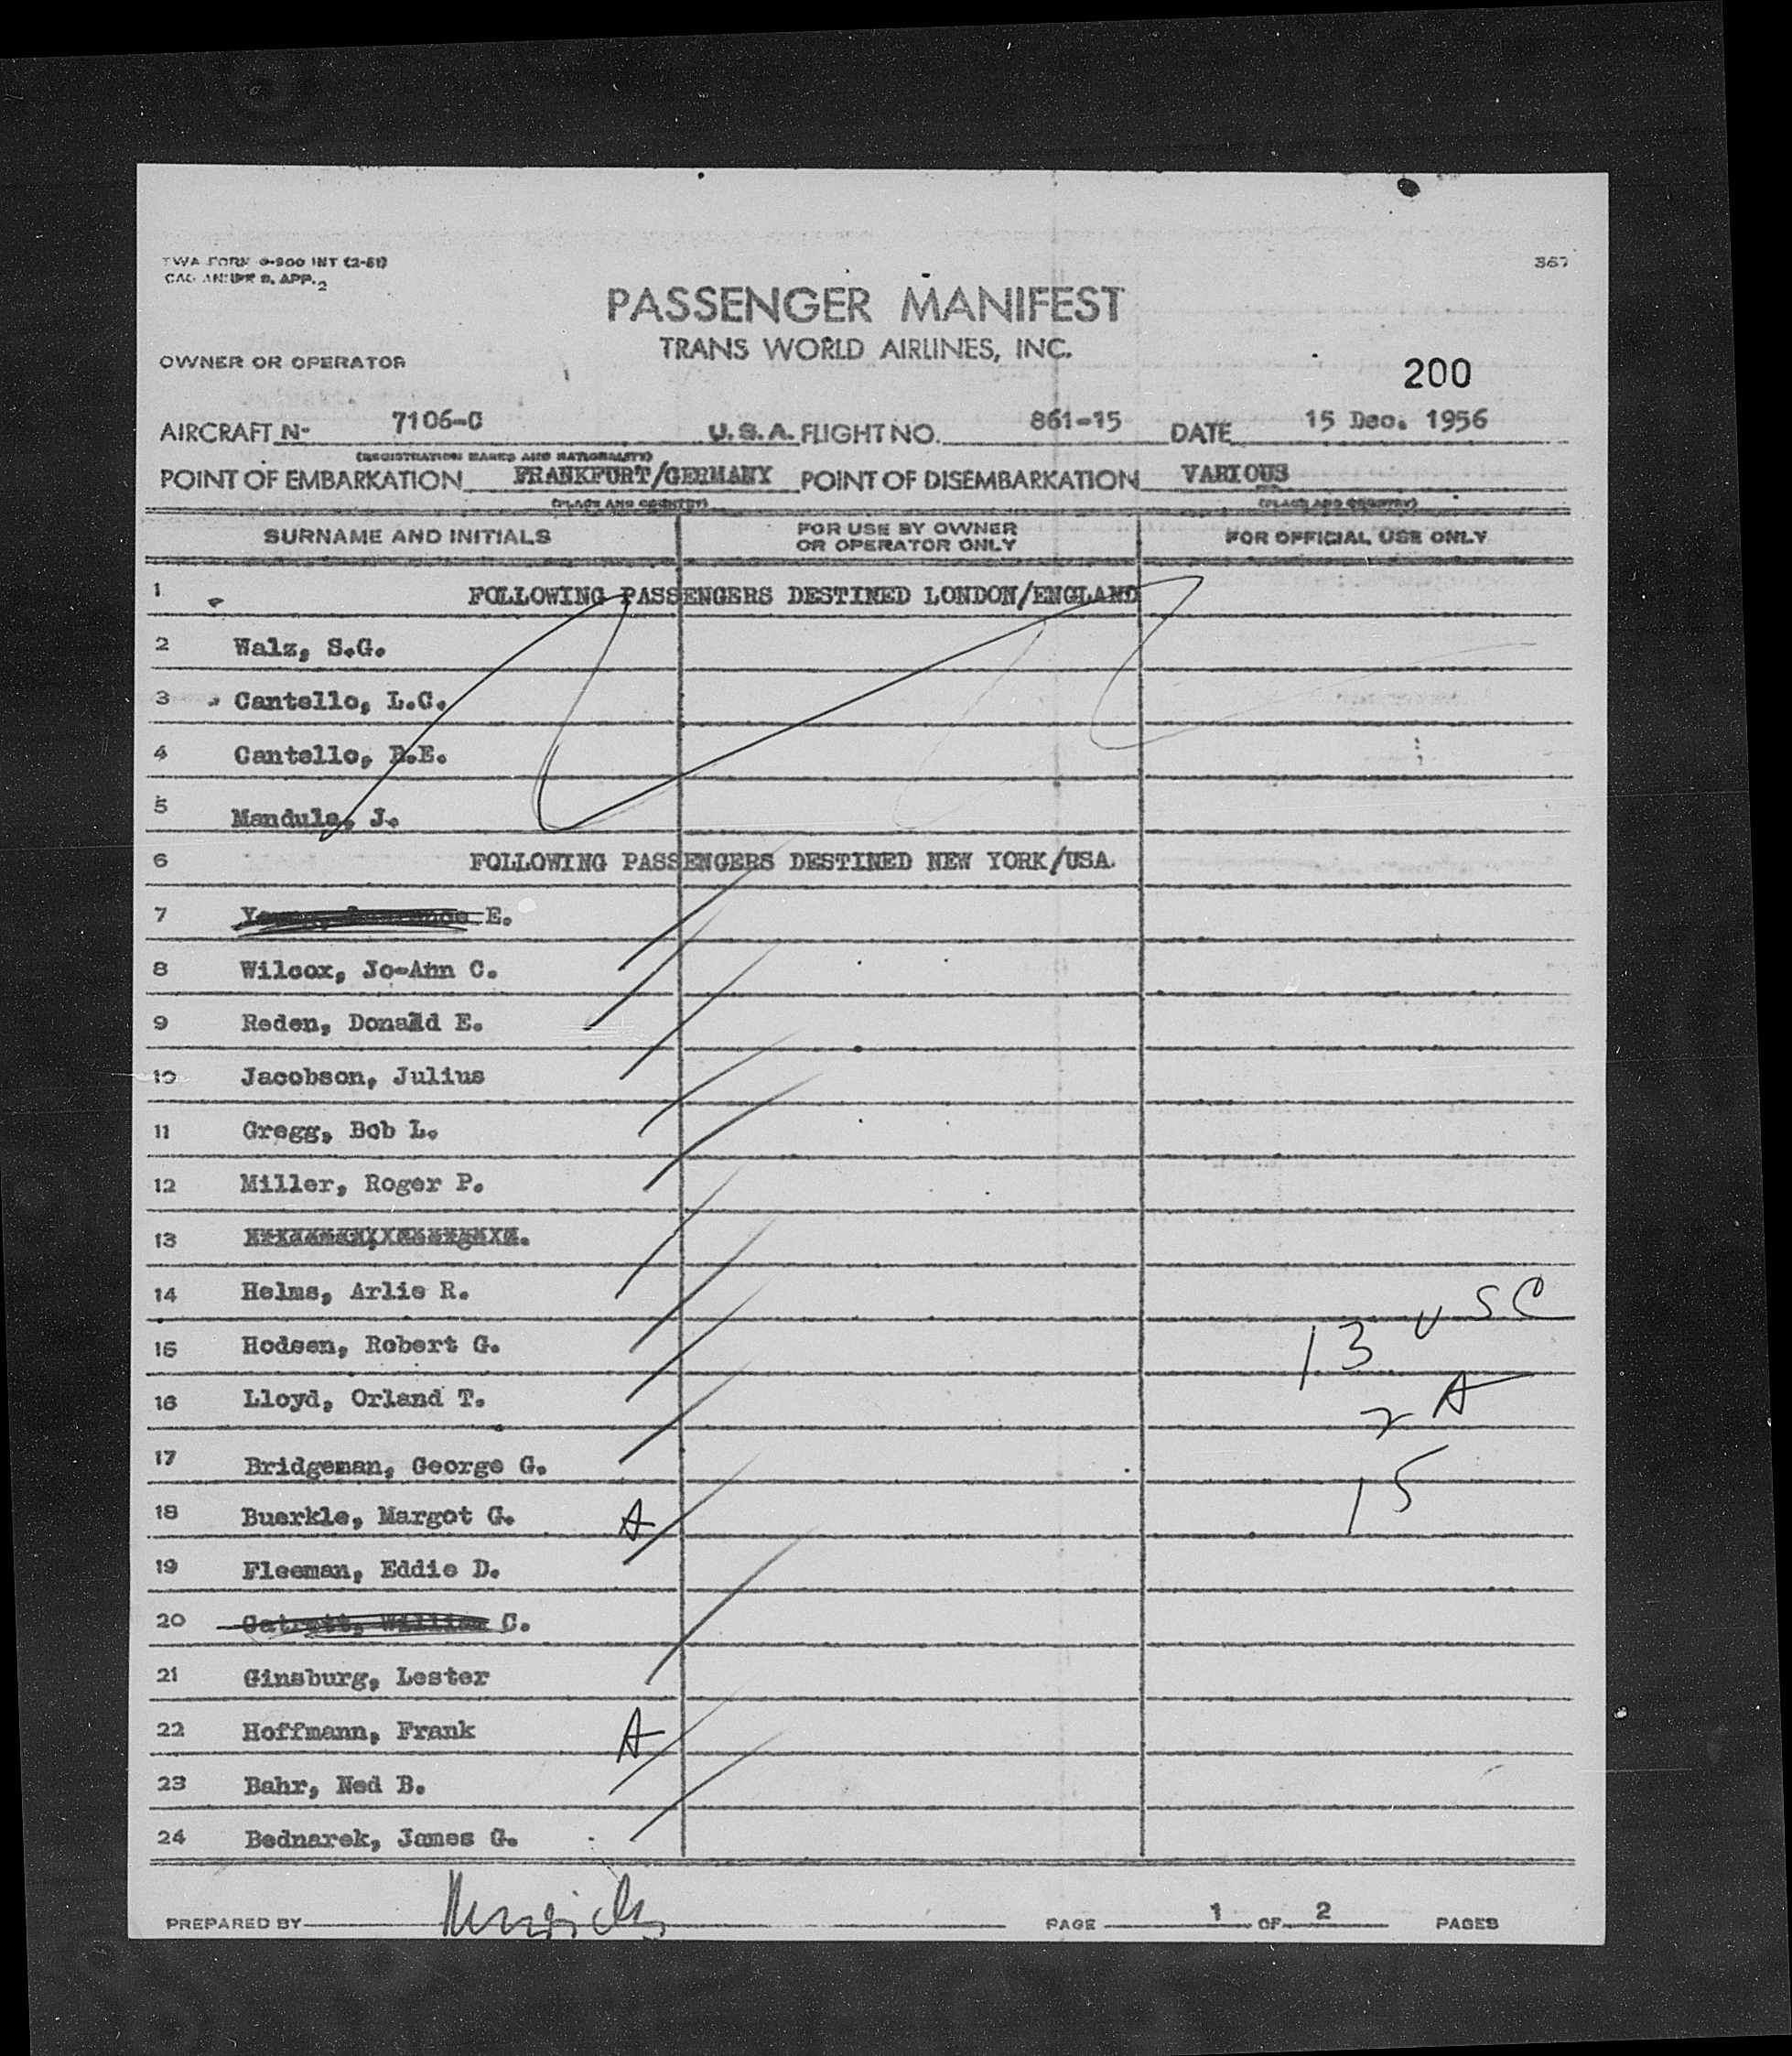 TWA FORM 0-900 INT (2-51)
CAO ANNEX 9, APP. 2
367
PASSENGER MANIFEST
TRANS WORLD AIRLINES, INC.
OWNER OR OPERATOR
200
AIRCRAFT N- 7106-C U.S.A. FLIGHT NO. 861-15 DATE 15 Dec. 1956
(REGISTRATION MARKS AND NATIONALITY)
POINT OF EMBARKATION FRANKFURT/GERMANY POINT OF DISEMBARKATION VARIOUS
(PLACE AND COUNTRY) (PLACE AND COUNTRY)
SURNAME AND INITIALS FOR USE BY OWNER OR OPERATOR ONLY FOR OFFICIAL USE ONLY
1 FOLLOWING PASSENGERS DESTINED LONDON/ENGLAND
2 Walz, S.G.
3 Cantello, L.C.
4 Cantello, B.E.
5 Mandula, J.
6 FOLLOWING PASSENGERS DESTINED NEW YORK/USA.
7 E.
8 Wilcox, Jo-Ann C.
9 Reden, Donald E.
10 Jacobson, Julius
11 Gregg, Bob L.
12 Miller, Roger P.
13
14 Helms, Arlie R.
15 Hodsen, Robert G. 13 USC
16 Lloyd, Orland T. 2 A
17 Bridgeman, George G.
18 Buerkle, Margot G. A 15
19 Fleeman, Eddie D.
20 William C.
21 Ginsburg, Lester
22 Hoffmann, Frank A
23 Bahr, Ned B.
24 Bednarek, James G.
PREPARED BY PAGE 1 OF 2 PAGES